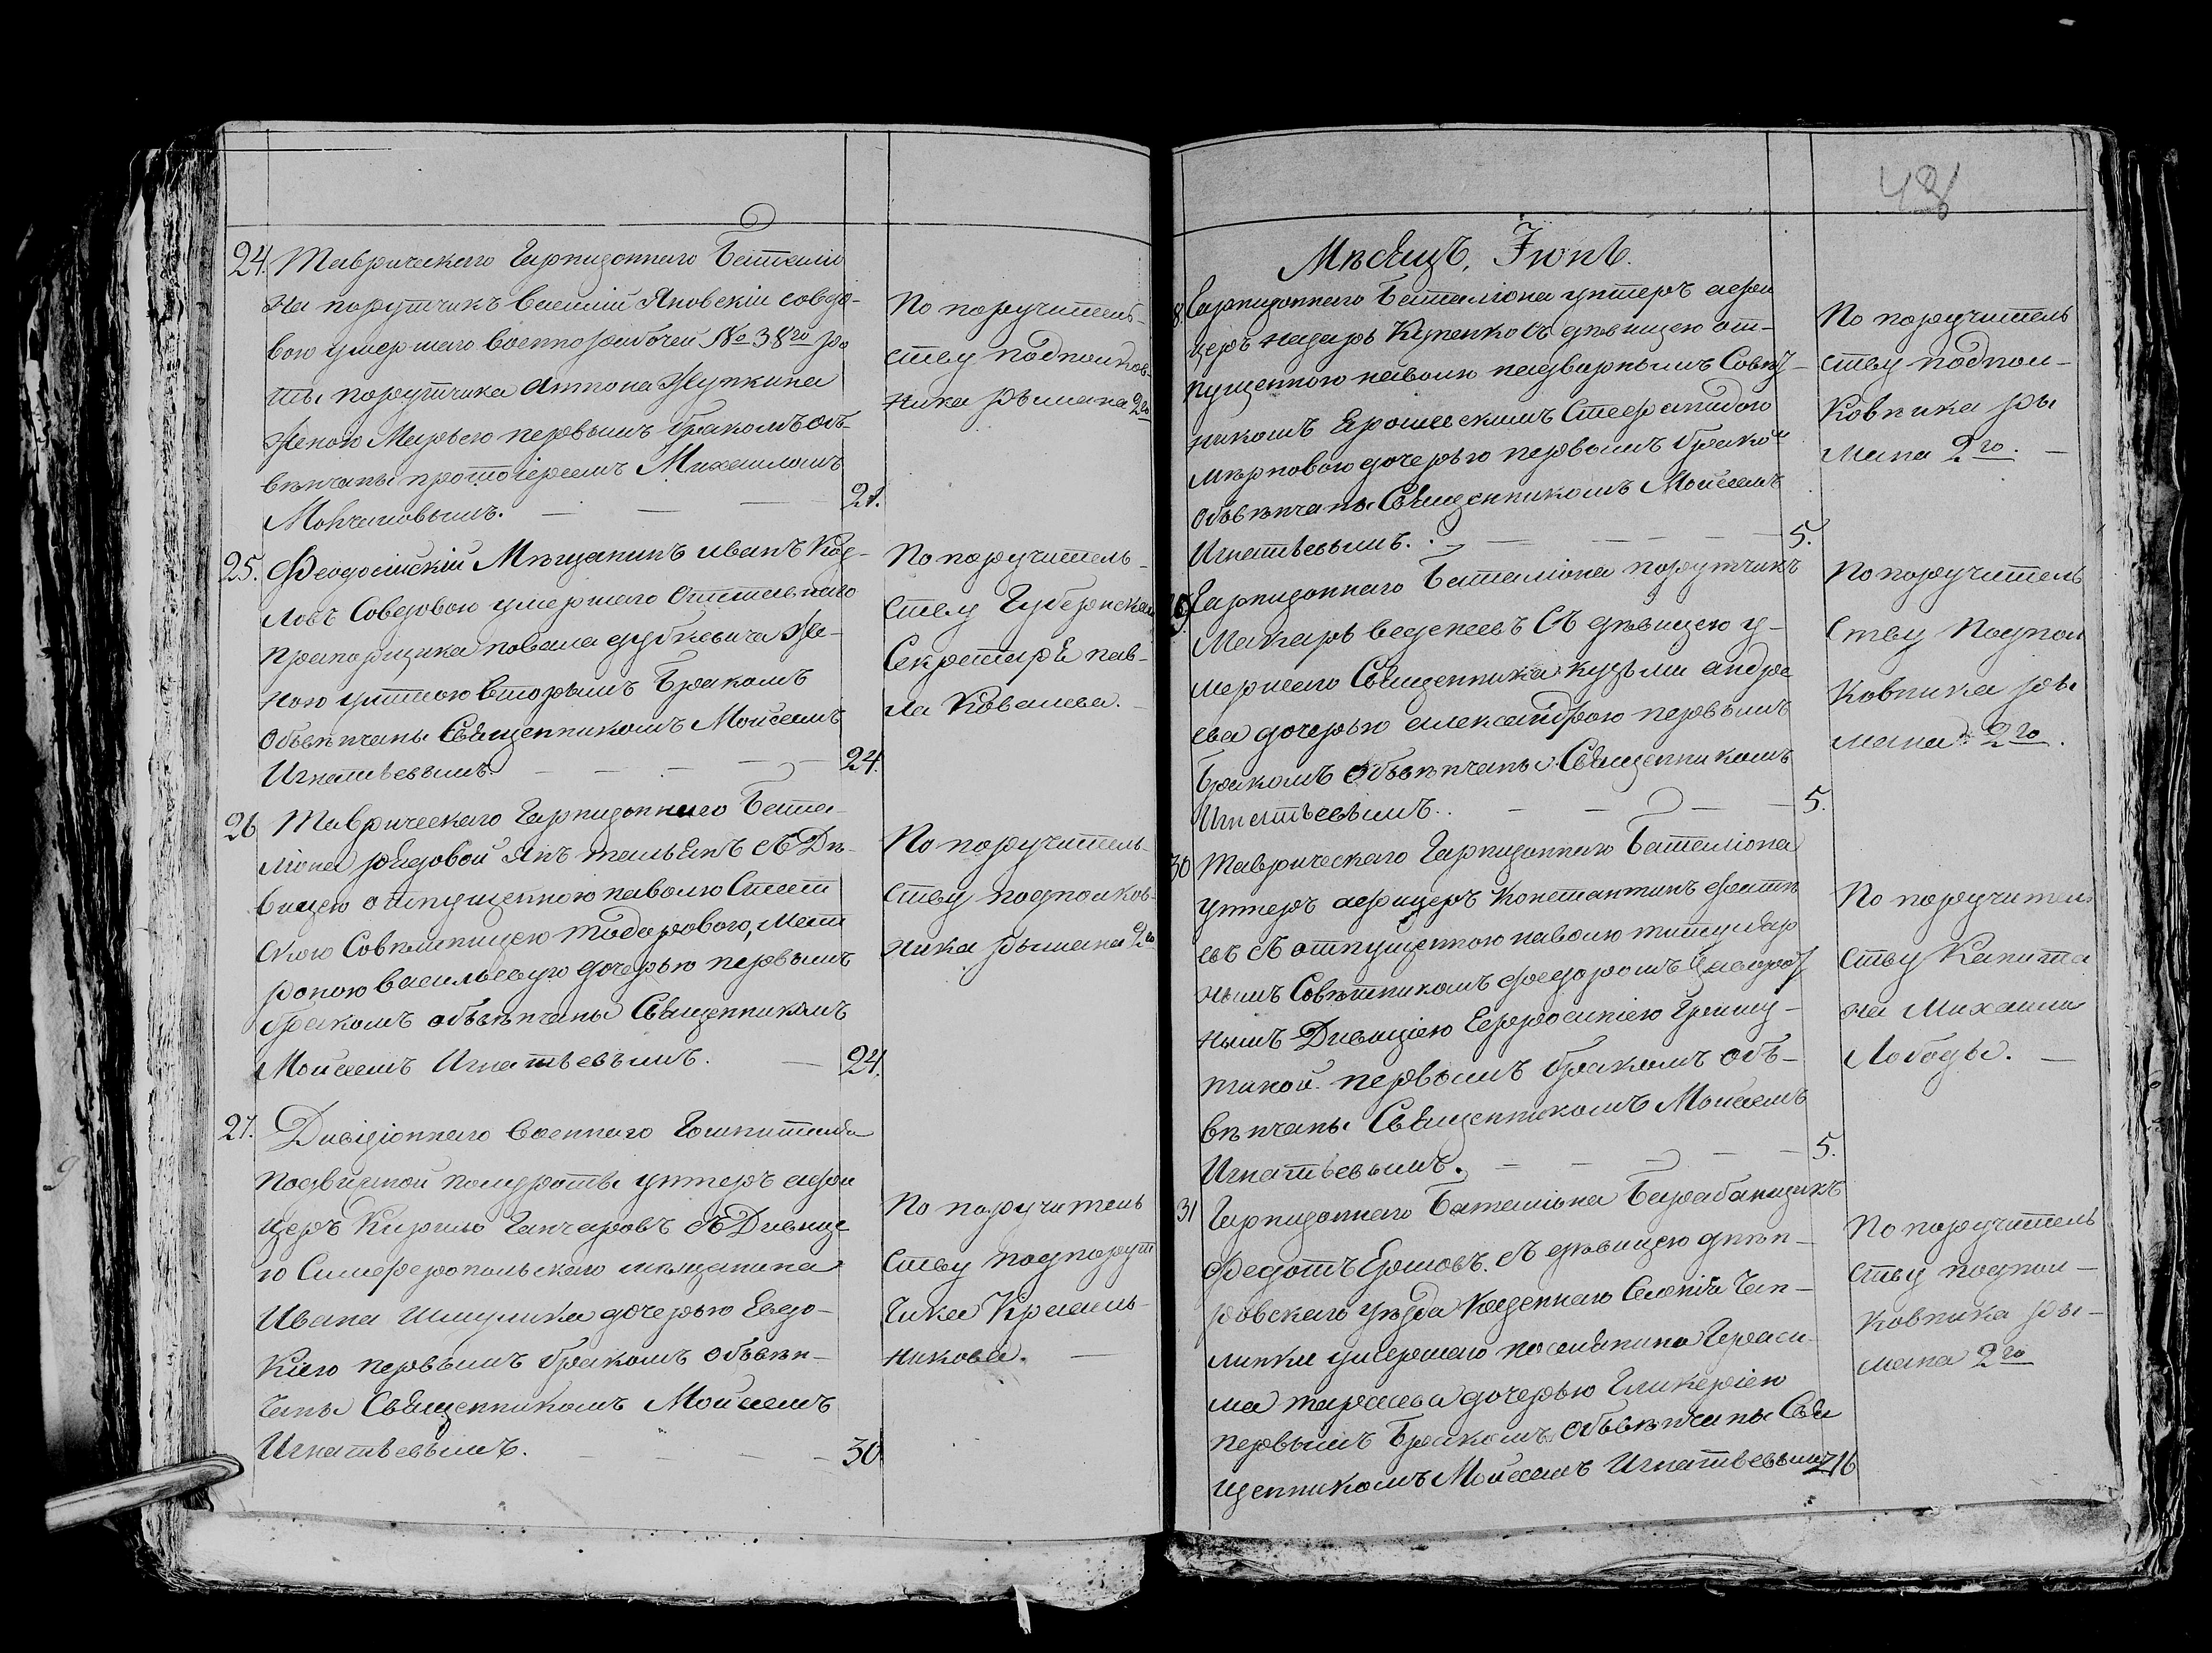 24. Таврическаго Гарнизоннаго Баталіо
на порутчикъ Василій Яновскій совдо-
вою умершаго военнорабочей № 38го ро
ты порутчика Антона Жупкина
женою Марьею первымъ бракомъ объ
вѣнчаны протоіереемъ Михаиломъ
21.
По поручитель-
ству подполков-
ника Рымана 2го
25. Феодосійскій Мѣщанинъ иванъ Коз-
ловъ Совдовою умершаго
Прапорщика павла дубкевича Же-
ною вторымъ Бракомъ
Объвѣнчаны Священникомъ Мойсеемъ
Игнатьевымъ. 24.
По поручитель-
ству Губернскаго
Секретаря пав-
ла Ковалева.
26 Таврическаго Гарнизоннаго Бата-
ліона рядовой Янъ съ Дѣ-
вицею отпущенною наволю Статт
скою Совѣтницею тодоровою, Мат
роною васильевую дочерью первымъ
бракомъ объвѣнчаны Священникомъ
Мойсеемъ Игнатьевымъ. 24.
По поручитель-
ству подполков-
ника Рымана 2го
27. Дивізіоннаго Военнаго Гошпиталя
подвижной полуроты унтеръ афи
церъ Кирило Ганчаровъ съ Дивице
ю Симферопольскаго мѣщанина
Ивана Шишулика дочерью Евдо-
кіею первымъ бракомъ объвѣн-
чаны Священникомъ Мойсеемъ
Игнатьевымъ. 30
По поручитель
ству подпорут
чика Красиль-
никова.
43
Мѣсяцъ, Іюнь.
8. Гарнизоннаго Баталіона унтеръ афи
церъ Назаръ Купенко съ дѣвицею от-
пущенною наволю надворнымъ Совѣт-
никомъ Ерошевскимъ Стефанидою
дочерью первымъ брако
объвѣнчаны Священникомъ Мойсеемъ
Игнатьевымъ. 5.
По поручитель
ству подпол-
ковника Ры
мана 2го.
29. Гарнизоннаго Баталіона порутчикъ
Макаръ веденеевъ съ дѣвицею у-
мершаго Священника кузьми андре
ева дочерью александрою первымъ
Бракомъ объвѣнчаны Священникомъ
Игнатьевымъ. 5.
По поручитель
ству Подпол
ковника Ры
мана 2го.
30 Таврическаго Гарнизоннаго Баталіона
унтеръ афицеръ Константинъ фатѣ
евъ съ отпущенною наволю титуляр
нымъ Совѣтникомъ федоромъ
нымъ Дивицею Ефросиніею
первымъ бракомъ объ-
вѣнчаны Священникомъ Мойсеемъ
Игнатьевымъ. 5.
По поручитель
ству Капита
на Михаила
Лободы.
31 Гарнизоннаго Баталіона Барабанщикъ
Федотъ Ершовъ. съ дѣвицею днѣп-
ровскаго уѣзда Казеннаго Селенія Чап-
линки умершаго поселянина Гераси-
ма тарасева дочерью Гликеріею
первымъ Бракомъ объвѣнчаны Свя
щенникомъ Мойсеемъ Игнатьевымъ 16
По поручитель
ству подпол-
ковника Ры-
мана 2го